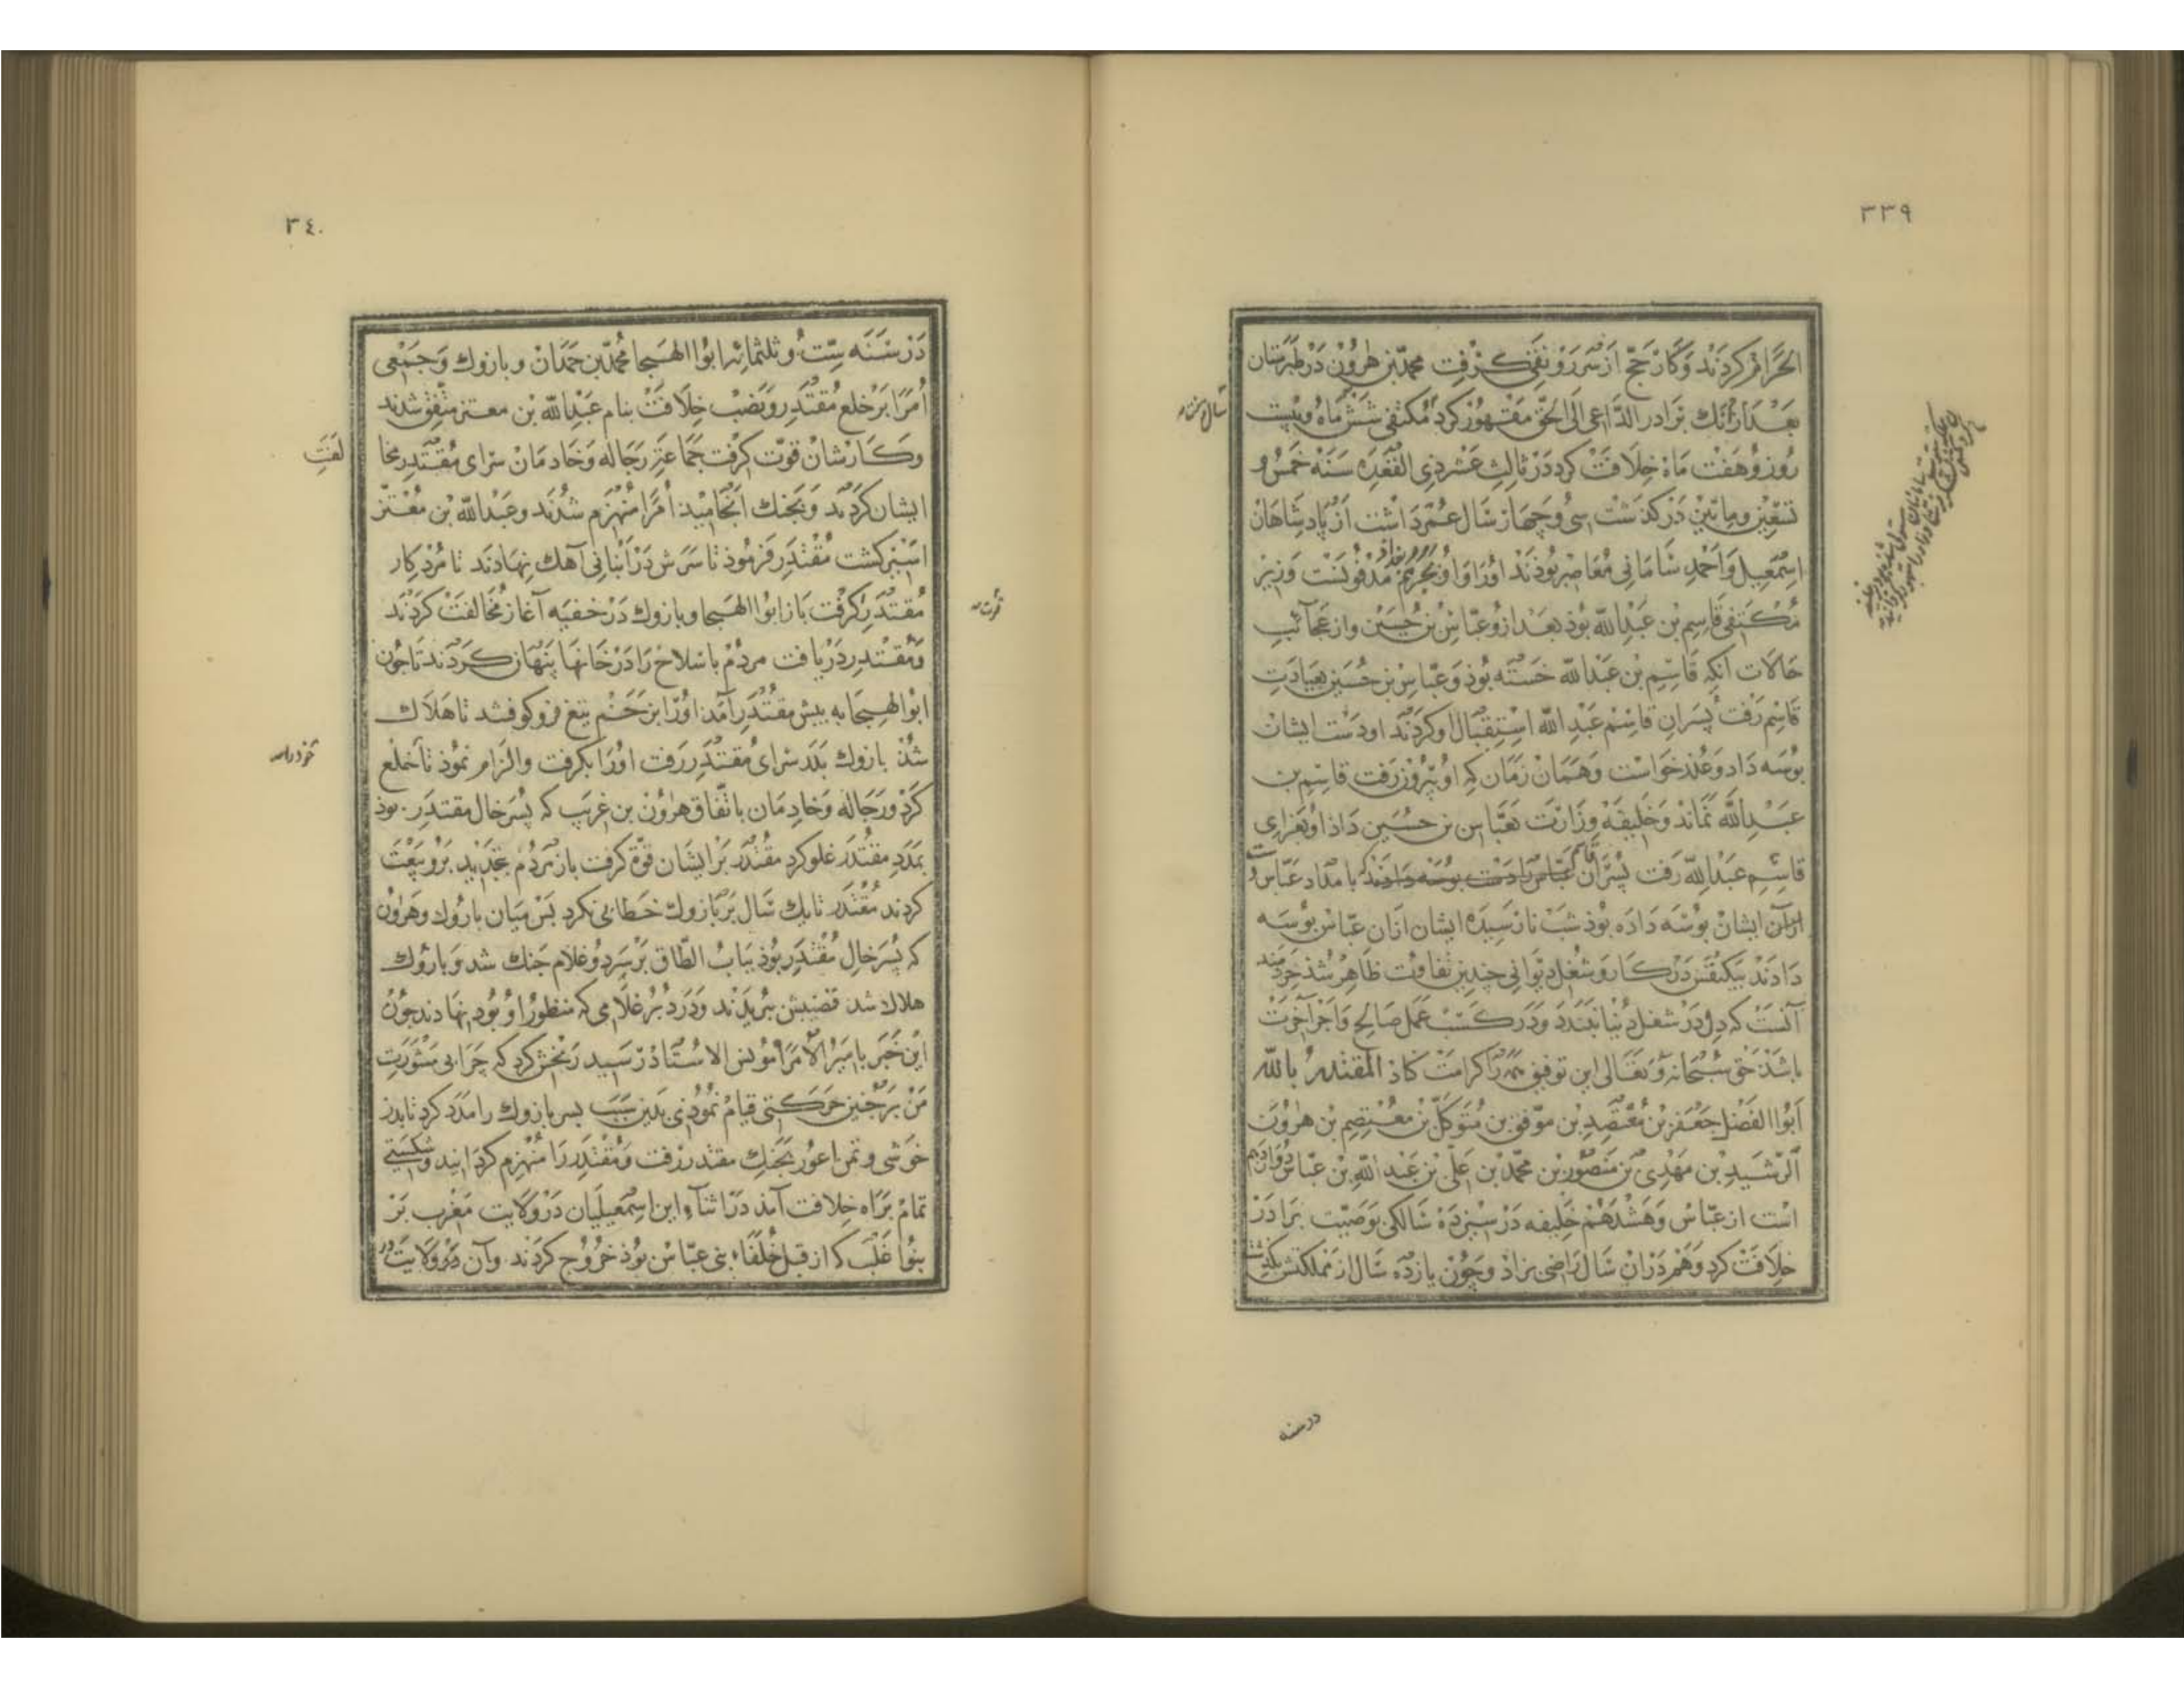 ٣٣٩
الحَرَام کردند و کار حجّ از سر رونق گرفت محمّد بن هرون در طبرستان
بعد از آنک برادر الدّاعی الی الحقّ مقهور کرد مکتفی شش ماه و بیست
روز و هفت ماه خلافت کرد در ثالث عشر ذی القعده سنه خمس و
تسعین و ماتین درکذشت سی و چهار سال عمر داشت از پادشاهان
اسمعیل و احمد سامانی معاصر بوذند او را مدفونست وزیر
مکتفی قاسم بن عبدالله بوذ بعد ازو عبّاس بن حسین و از عجائب
حالات آنکه قاسم بن عبدالله خسته بوذ و عبّاس بن حسین بعیادت
قاسم رفت پسران قاسم عبدالله استقبال او کردند او دست ایشان
بوسه داد و عذر خواست و همان زمان که او بیرون رفت قاسم بن
عبدالله نماند و خلیفه وزارت بعبّاس بن حسین داذ او بعزای
قاسم عبدالله رفت پسران قاسم عباس را دست بوسه دادند بامداد عبّاس
ایشان بوسه داده بوذ شب نارسیده ایشان ازان عبّاس بوسه
دادند بیکنفس در کار و شغل دیوانی چندین تفاوت ظاهر شذ خردمند
آنست که دل در شغل دنیا نبندد و در کسب عمل صالح و اجر آخرت
باشذ حق سبحانه و تعالی این توفیق همه را کرامت کناذ المقتدر بالله
ابوا الفضل جعفر بن معتضد بن موفق بن متوکل بن معتصم بن هرون
الرشید بن مهدی بن منصور بن محمّد بن علی بن عبدالله بن عبّاس دوازدهم
است از عبّاس و هشدهم خلیفه در سیزده سالکی بوصیّت برادر
خلافت کرد و هم دران سال راضی بزاذ و چون یازده سال از مملکتش بگذشت
در سنه
٣٤٠
در سنه ستّ و ثلثمائه ابوا الهیجا محمّد بن حمدان و بازوک و جمعی
امرا بر خلع مقتدر و نصب خلافت بنام عبدالله بن معتز متّفق شدند
و کارشان قوّت کرفت جماعة رجاله و خادمان سرای مقتدر مخا
لفت
ایشان کردند و بجنک انجامید امرا منهزم شدند و عبدالله بن معتز
اسیر کشت مقتدر فرموذ تا سرش در انبانی آهک نهادند تا مرد کار
مقتدر کرفت باز ابوا الهیجا و بازوک در خفیه آغاز مخالفت کردند
و مقتدر دریافت مردم با سلاح را در خانها پنهان کردند تا چون
ابوا الهیجا به پیش مقتدر آمد او را بزخم تیغ فروکوفتند تا هلاک
شد بازوک بدر سرای مقتدر رفت او را بکرفت و الزام نموذ تا خلع
کرد و رجاله و خادمان باتّفاق هرون بن غریب که پسر خال مقتدر بوذ
بمدد مقتدر غلو کرد مقتدر بر ایشان قوّة کرفت باز مردم بتجدید برو بیعت
کردند مقتدر تا یک سال بر بازوک خطابی نکرد پس میان بازوک و هرون
که پسر خال مقتدر بوذ بباب الطّاق بر سر دو غلام جنک شد و بازوک
هلاک شد قضیبش ببریدند و در دبر غلامی که منظور او بود نهادند چون
این خبر بامیر الامرا مونس الاستاذ رسید رنجش کرد که چرا بی مشورت
من بر چنین حرکتی قیام نمودی بدین سبب پسر بازوک را مدد کرد تا بدر
خوشی و تمرا عور بجنک مقتدر رفت و مقتدر را منهزم کردانید و شکستی
تمام براه خلافت آمد در اثناء این اسمعیلیان در ولایت مغرب بر
بنوا غلب که از قبل خلفاء بنی عبّاس بوذ خروج کردند و آن در ولایت